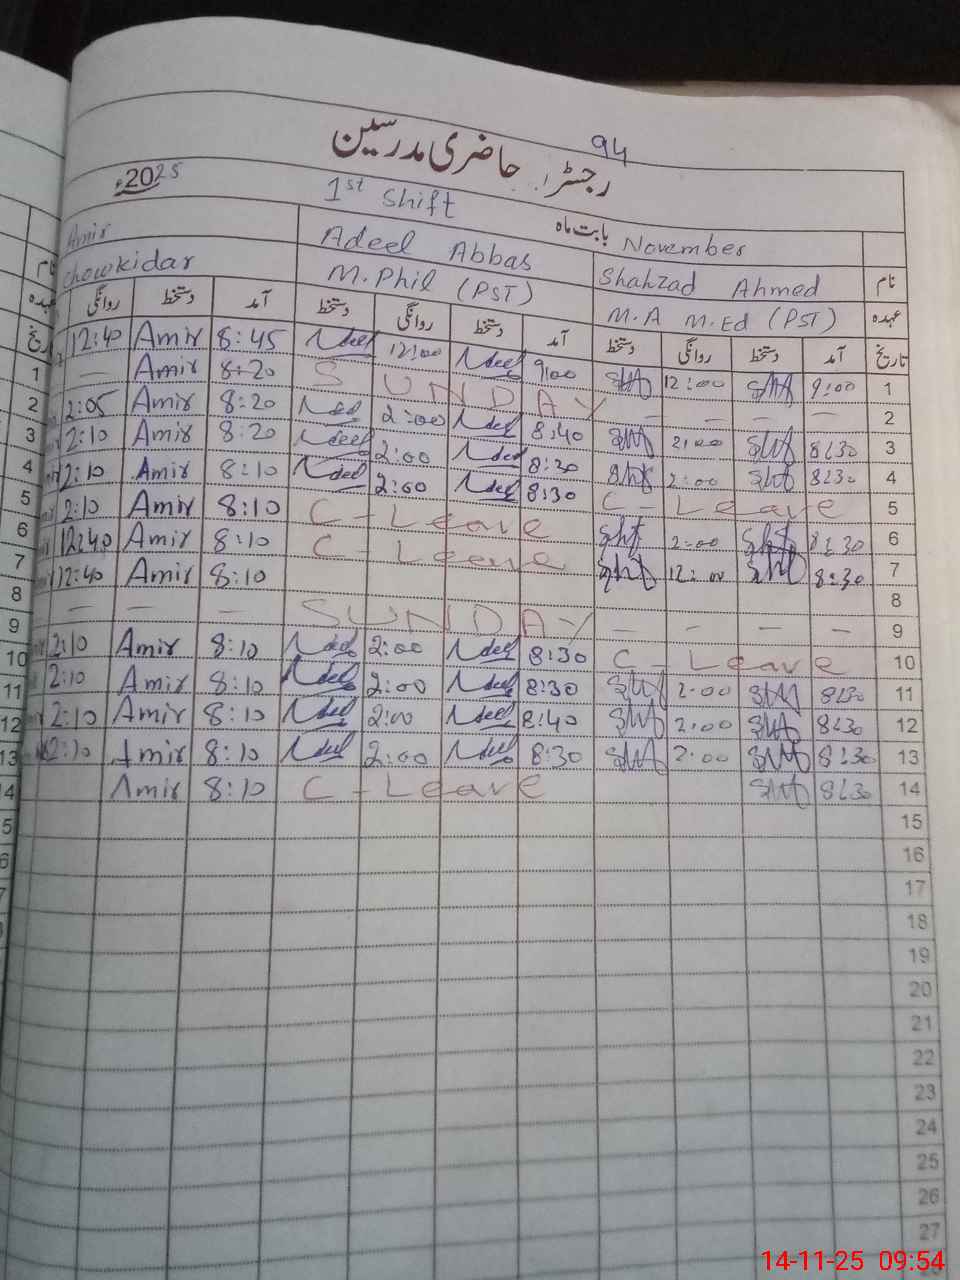 94
رجسٹر حاضری مدرسین
2025ء
1st Shift
بابت ماہ November
Amir Adeel Abbas Shahzad Ahmed نام
Chowkidar M.Phil (PST) M.A M.Ed (PST) عہدہ
روانگی دستخط آمد دستخط روانگی دستخط آمد دستخط روانگی دستخط آمد تاریخ
12:40 Amir 8:45 Adeel 12:00 Adeel 9:00 12:00 9:00 1
— Amir 8:20 SUNDAY — — — — 2
2:05 Amir 8:20 Adeel 2:00 Adeel 8:40 2:00 8:30 3
2:10 Amir 8:20 Adeel 2:00 Adeel 8:30 2:00 8:30 4
2:10 Amir 8:10 Adeel 2:00 Adeel 8:30 C-Leave 5
2:10 Amir 8:10 C-Leave 2:00 8:30 6
12:40 Amir 8:10 C-Leave 12:00 8:30 7
12:40 Amir 8:10 8
— — — SUNDAY — — — — 9
2:10 Amir 8:10 Adeel 2:00 Adeel 8:30 C-Leave 10
2:10 Amir 8:10 Adeel 2:00 Adeel 8:30 2:00 8:30 11
2:10 Amir 8:10 Adeel 2:00 Adeel 8:40 2:00 8:30 12
2:10 Amir 8:10 Adeel 2:00 Adeel 8:30 2:00 8:30 13
Amir 8:10 C-Leave 8:30 14
15
16
17
18
19
20
21
22
23
24
25
26
27
14-11-25 09:54